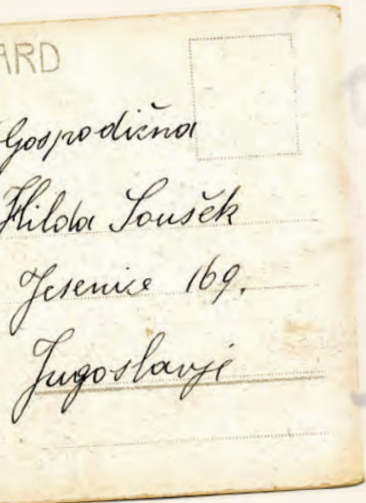 ARD
Gospodična
Hilda Soušek
Jesenice 169.
Jugoslavji